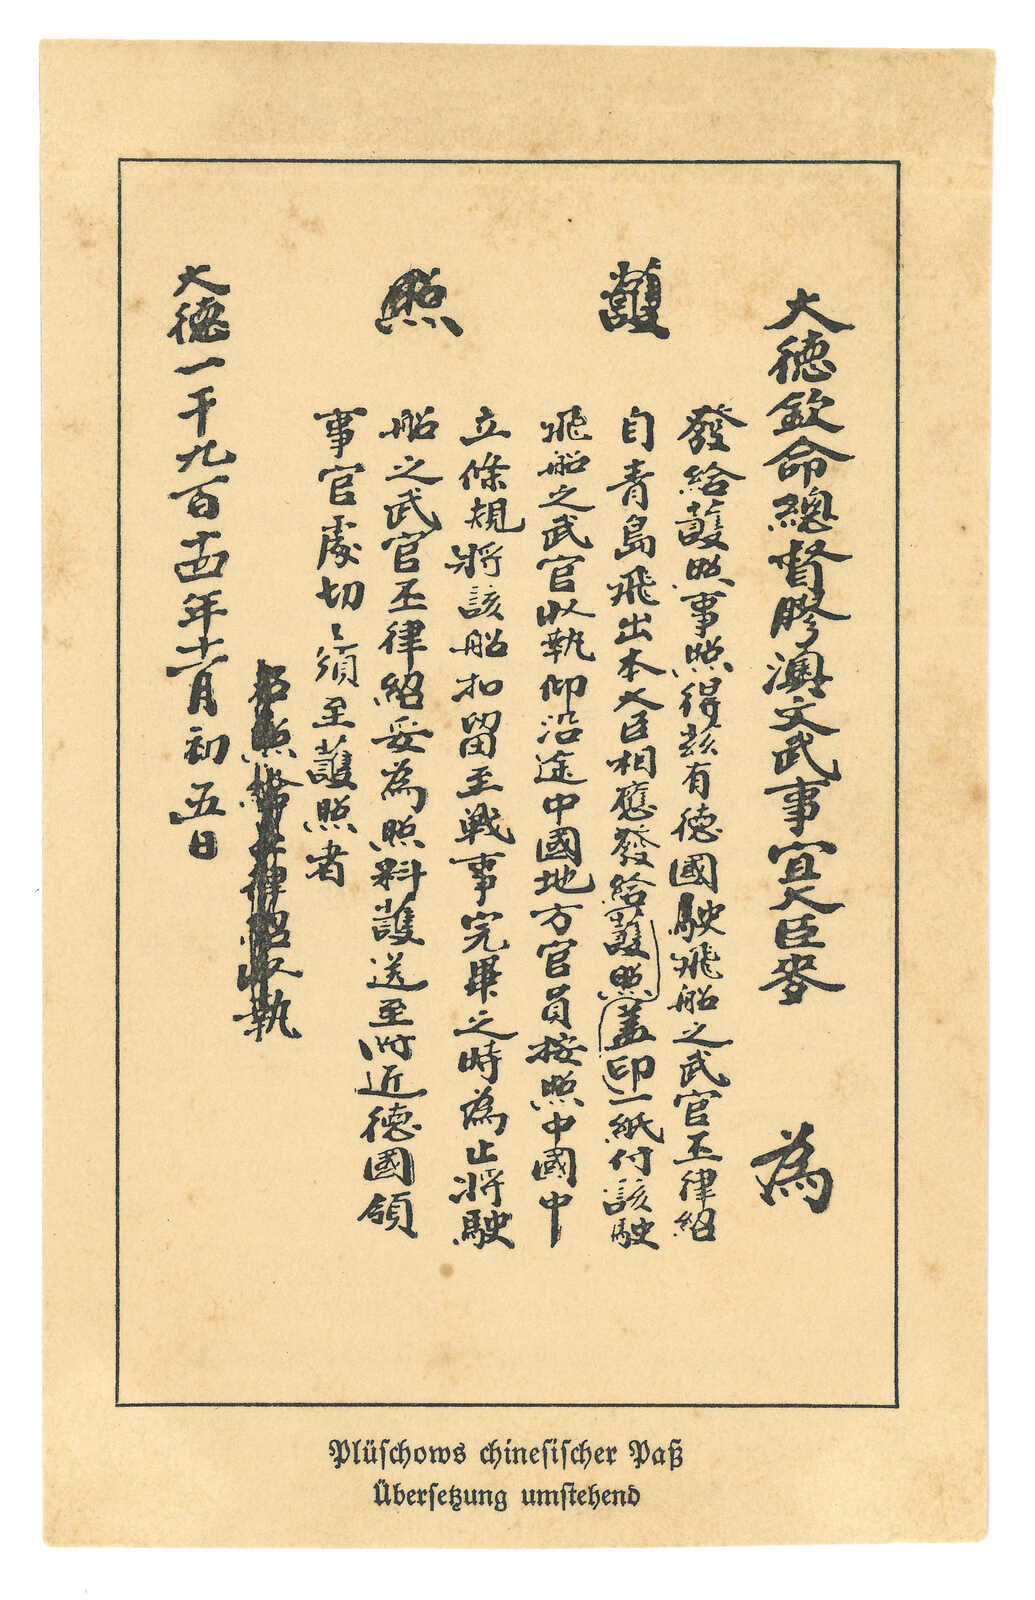 大德欽命總督膠澳文武事宜大臣麥 為
護 照
發給護照事照得兹有德國駛飛船之武官丕律紹
自青島飛出本大臣相應發給護照蓋印一紙付該駛
飛船之武官收執仰沿途中國地方官員按照中國中
立條規將該船扣留至戰事完畢之時為止將駛
船之武官丕律紹妥為照料護送至附近德國領
事官處切〻須至護照者
右照給丕律紹收執
大德一千九百十四年十一月初五日
Plüschows chinesischer Paß
Übersetzung umstehend